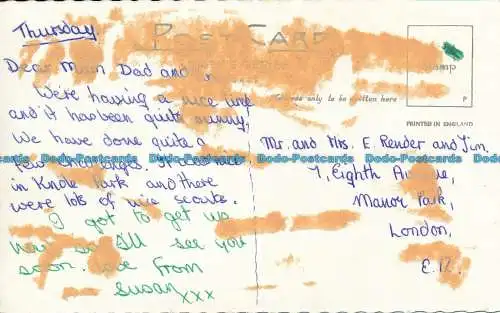 Thursday.
POST CARD
Dear Mum Dad and
We're having a nice time
and it has been quite sunny.
We have done quite a
few challenges. It
in Kindle Park and there
were lots of nice scouts.
I got to get up
now so I'll see you
soon. love from
Susan xxx
to be written here
PRINTED IN ENGLAND
P
Mr. and Mrs. E. Render and Jim.
7, Eighth Avenue,
Manor Park,
London,
E.12.
Dodo-Postcards Dodo-Postcards Dodo-Postcards Dodo-Postcards Dodo-Postcards